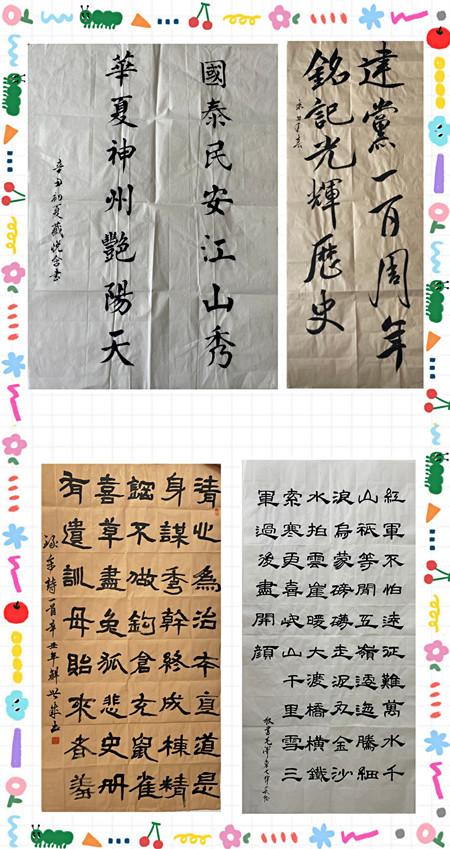 國泰民安江山秀
華夏神州艷陽天
辛丑初夏
建黨一百周年
銘記光輝歷史
清心為治本直道是
身謀秀幹終成棟精
鋼不做鉤倉充鼠雀
喜草盡兔狐悲史冊
有遺訓毋貽來者羞
詩一首辛丑年解世
紅軍不怕遠征難萬水千
山祗等閒五嶺逶迤騰細
浪烏蒙磅礴走泥丸金沙
水拍雲崖暖大渡橋橫鐵
索寒更喜岷山千里雪三
軍過後盡開顏